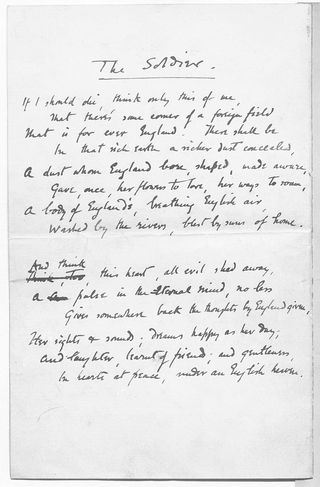 The Soldier.
If I should die, think only this of me,
That there's some corner of a foreign field
That is for ever England. There shall be
In that rich earth a richer dust concealed,
A dust whom England bore, shaped, made aware,
Gave, once, her flowers to love, her ways to roam,
A body of England's, breathing English air,
Washed by the rivers, blest by suns of home.
And think
Think, too, this heart, all evil shed away,
A pulse in the Eternal mind, no less
Gives somewhere back the thoughts by England given,
Her sights & sounds; dreams happy as her day;
And laughter, learnt of friends; and gentleness,
In hearts at peace, under an English heaven.